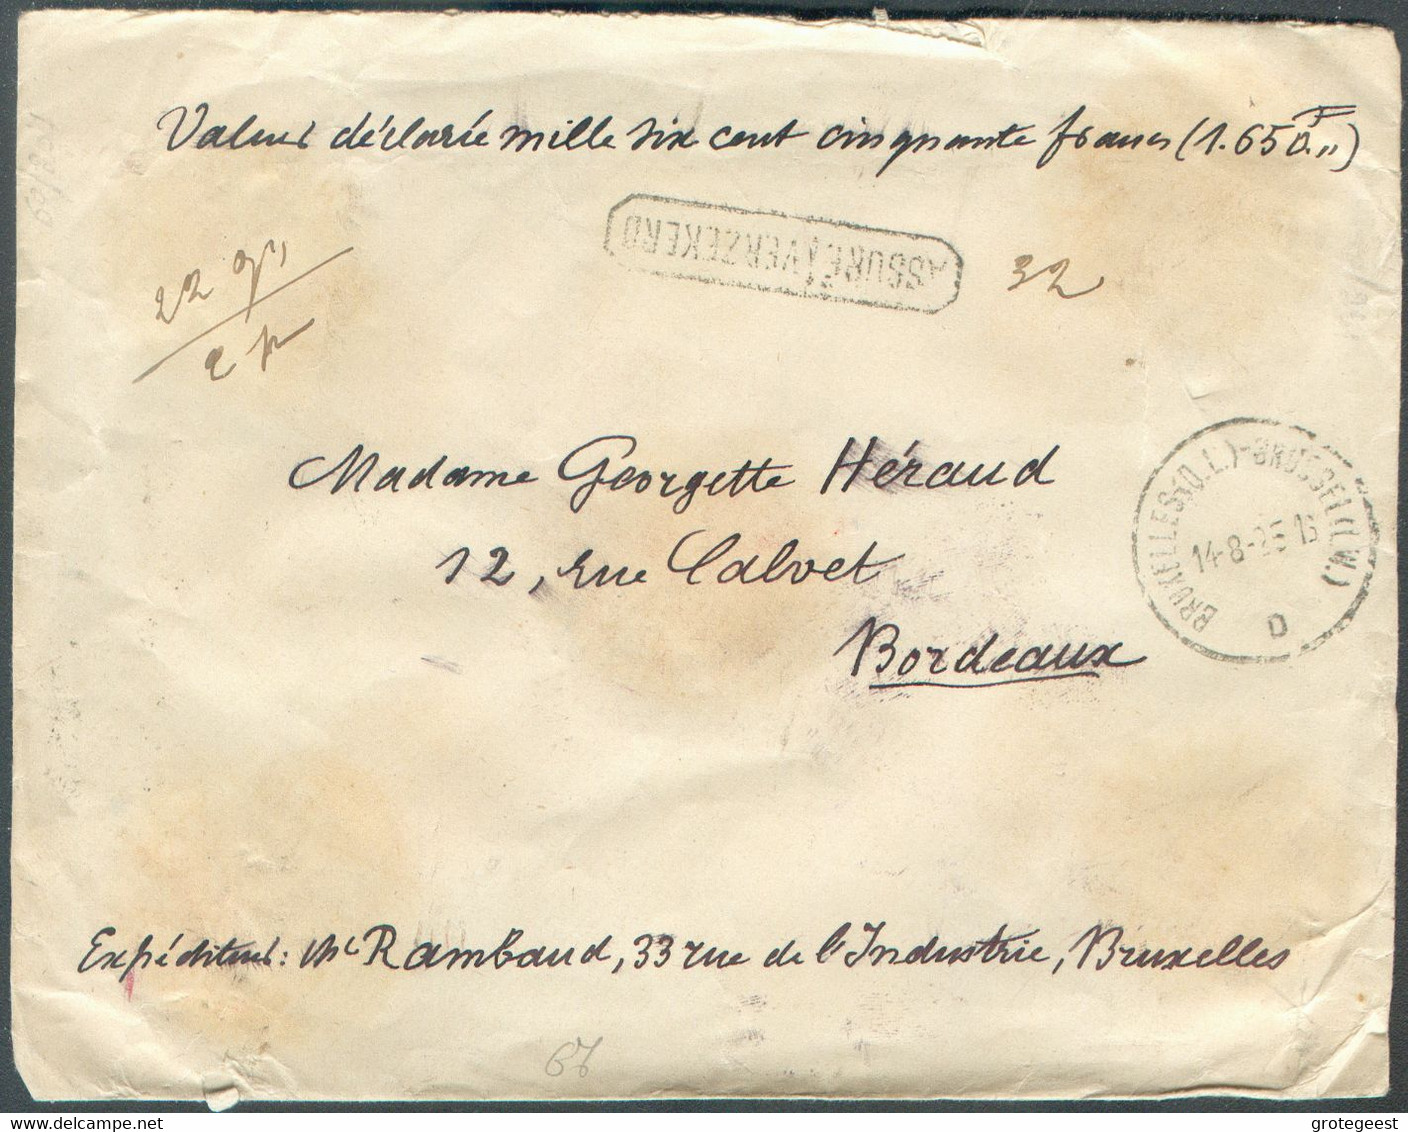 Valeur déclarée mille six cent cinquante francs (1.650F.,,)
ASSURE/VERSEKERD
32
22 gr
2 p
Madame Georgette Héraud
12, rue Calvet
Bordeaux
BRUXELLES (Q.L.)-BRUSSEL (L.W.)
14-8-25 16
D
Expéditeur: Mr Rambaud, 33 rue de l'Industrie, Bruxelles
67
grotegeest